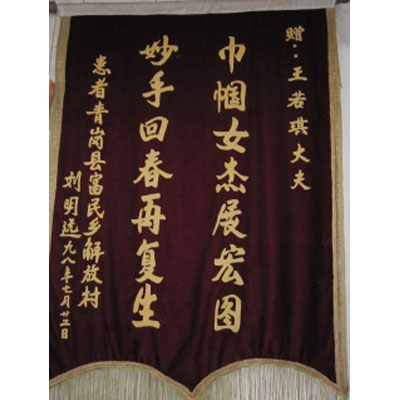 赠：王若琪大夫
巾帼女杰展宏图
妙手回春再复生
患者青岗县富民乡解放村
刘明远九八年七月廿三日